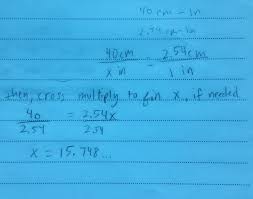 40 cm - in
2.54 cm - in
40cm 2.54 cm
x in = 1 in
then, cross multiply to fin x, if needed
40 = 2.54x
2.54 2.54
x = 15.748...